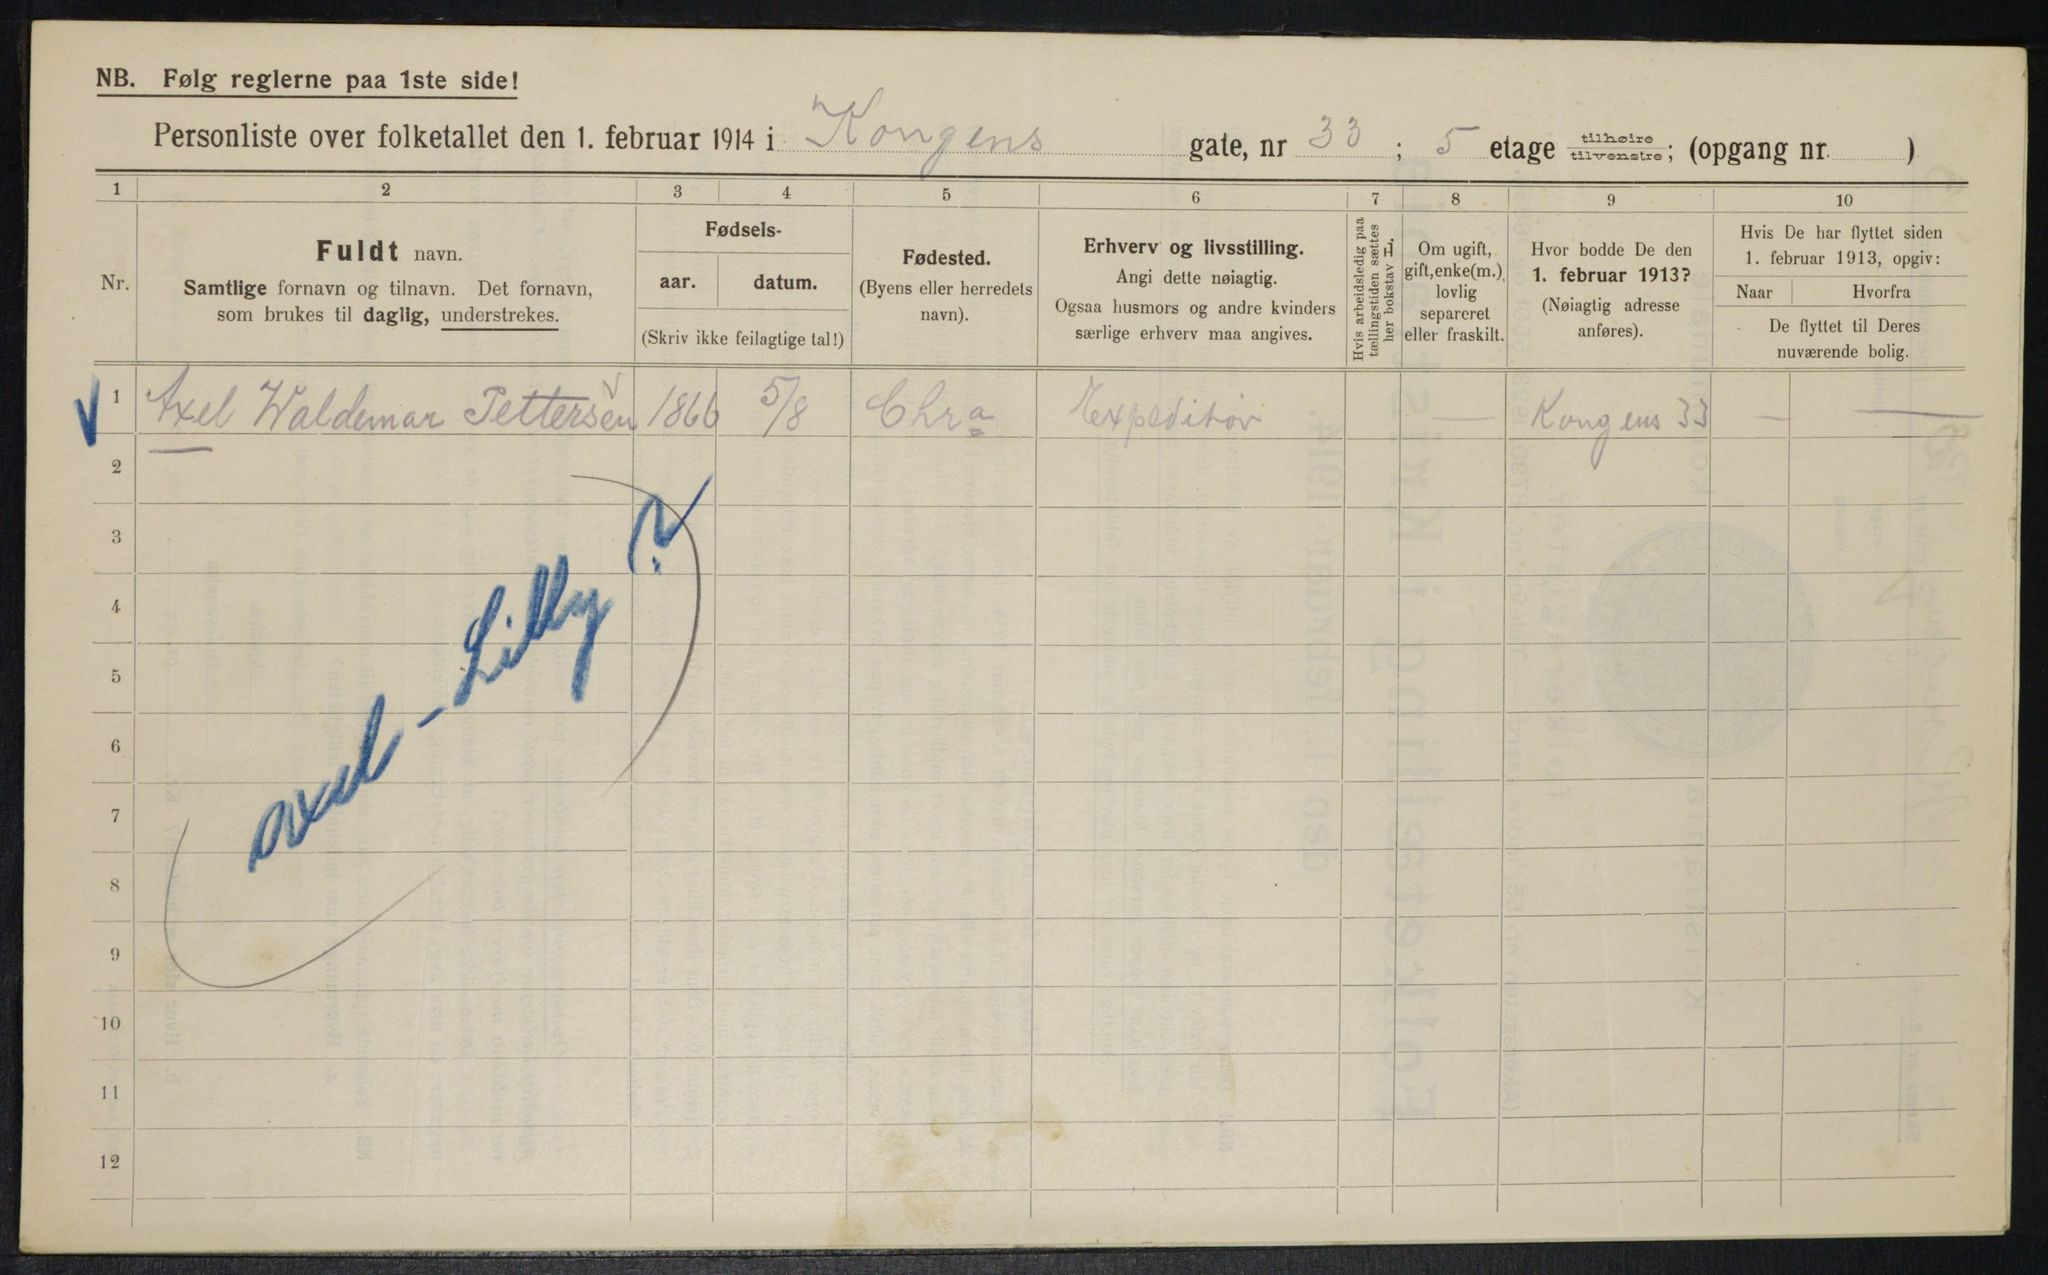 NB. Følg reglerne paa 1ste side!
Personliste over folketallet den 1. februar 1914 i Kongens gate, nr 33; 5 etage tilhøire tilvenstre; (opgang nr. )
1 2 3 4 5 6 7 8 9 10
Nr.
Fuldt navn.
Samtlige fornavn og tilnavn. Det fornavn,
som brukes til daglig, understrekes.
Fødsels-
aar. datum.
(Skriv ikke feilagtige tal!)
Fødested.
(Byens eller herredets
navn).
Erhverv og livsstilling.
Angi dette nøiagtig.
Ogsaa husmors og andre kvinders
særlige erhverv maa angives.
Hvis arbeidsledig paa
tællingstiden sættes
her bokstav L.
Om ugift,
gift, enke(m.),
lovlig
separeret
eller fraskilt.
Hvor bodde De den
1. februar 1913?
(Nøiagtig adresse
anføres).
Hvis De har flyttet siden
1. februar 1913, opgiv:
Naar Hvorfra
De flyttet til Deres
nuværende bolig.
1 Axel Waldemar Pettersen 1866 5/8 Chra Expeditør — Kongens 33 — —
2
3
4
5
6
7
8
9
10
11
12
Axel - Lilly ?